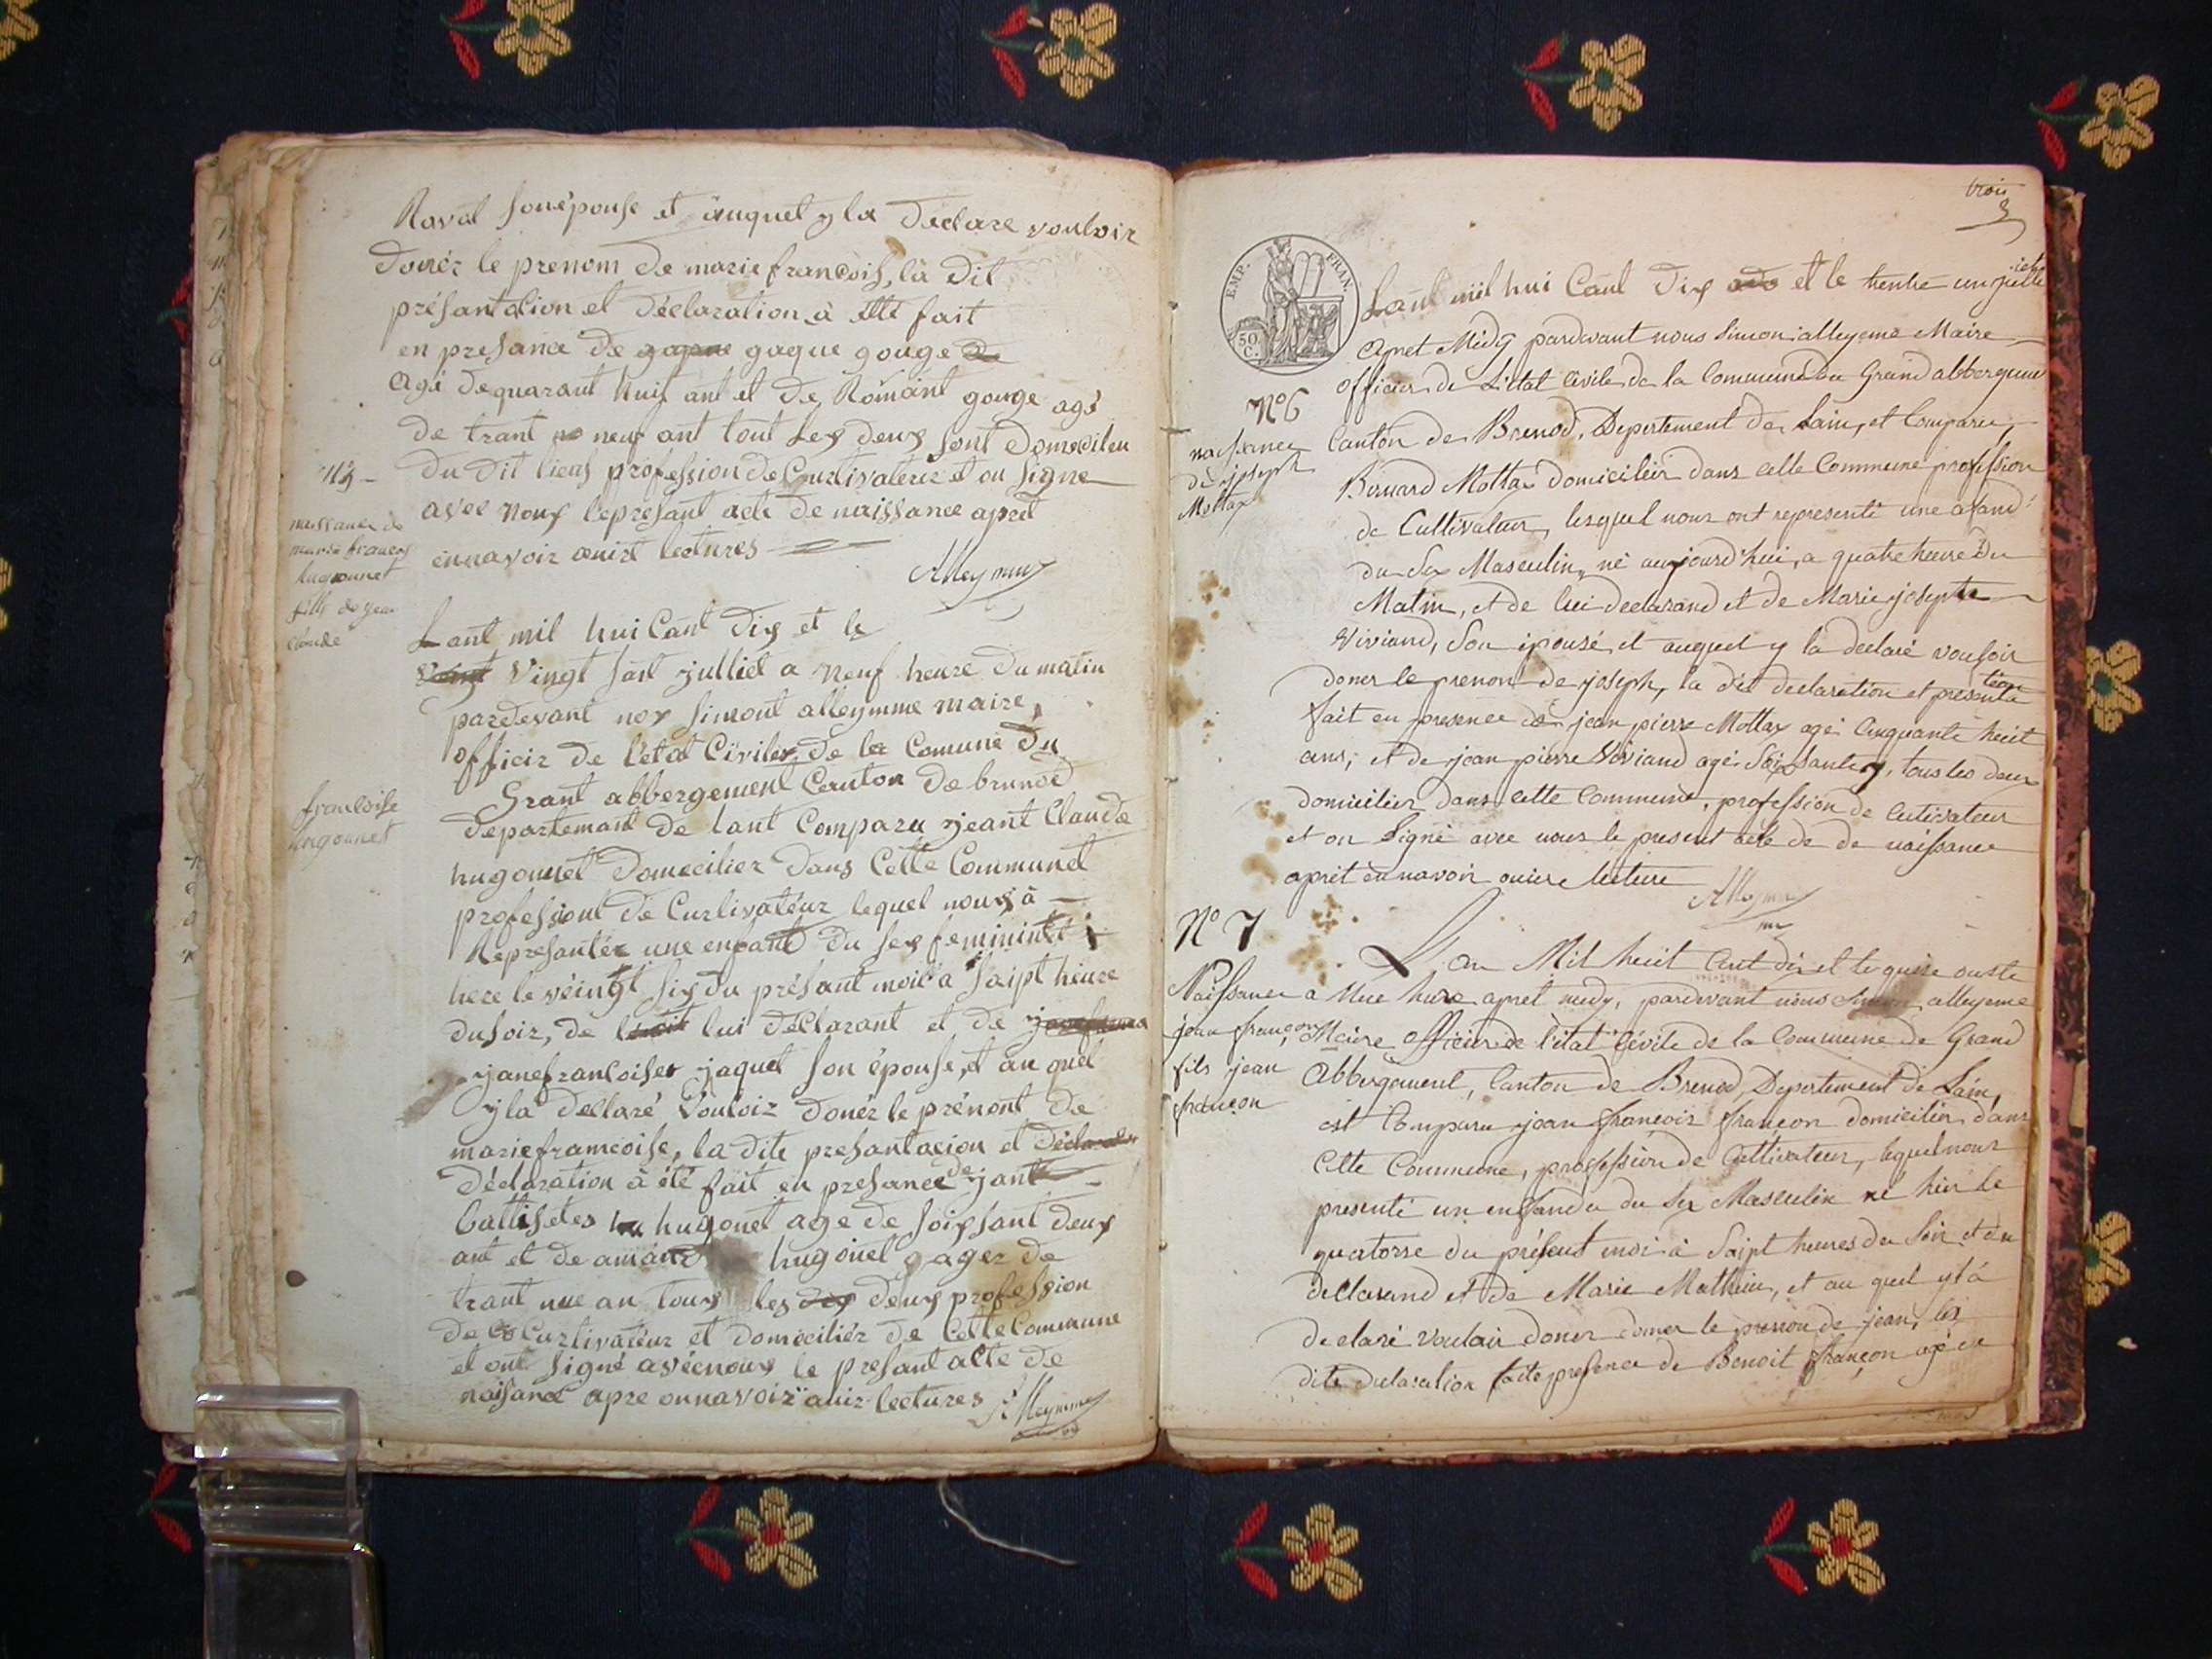 Naval son épouse et auquel y la Déclare vouloir
Donér le prenom De marie francois, la Dit
présantation et Déclaration à été fait
en presance De gaque gouge
Agé De quarant huit ant et De Romant gouge agé
De trant neuf ant tout Les Deux sont Domecilieu
Du Dit lieus profession De Curlivaterer et on signe
avec Nous le presant acte De naissance apret
ennavoir ouirt lectures
Alleymme
N° 5
naissance de
marie francois
hugonnet
fille de jean
claude
francoise
hugonnet
Lant mil hui Cant Dix et le
Vingt sant julliet a Neuf heure Du matin
pardevant nox simont alleymme maire
officier De l'etat Civiles De la Comune Du
Grant abbergement Canton De brunod
Departemant De lant Comparu jeant Claude
hugonnet Domecilier Dans Cette Communet
professiont De Curlivateur lequel nous à
Representér une enfant Du sex femininet
here le véingt six Du présant moic à saipt heure
Du soir, De lui Déclarant et De
janefrancoises jaquet son épouse, et au quel
y la Dellaré Vouloir Donér le prénont De
mariefrancoise, la Dite presantacion et
Déclaration à été fait en presance de jant
battistes hugonet age De soissant Deux
ant et De amand hugonet gager De
trant nue an tous les Deux profession
De Curlivateur et Domeciliér De Cette Commune
et ont signé avéenous le presant alte De
naisance apre onnavoir auir lectures
Alleymme
trois
3
EMP. FRAN.
50
C.
Lant mil hui Cant Dix et le trentre un juillet
Apret Midy pardevant nous Simon alleyeme Maire
Officier de L'etat Civile de la Commune du Grand abbergeme
N° 6
naissance
de joseph
Mottax
Canton de Brenod, Departement de Lain, et Comparu,
Bernard Mottax domicilier dans cette Commune profession
de Cultivateur, lesquel nous ont representé une afand
du Sex Masculin, né aujourd'hui, a quatre heure du
Matin, et de lui declarand et de Marie josepte
Viviand, Son épousé, et auquel y la declaré vouloir
doner le prenon de joseph, la dit declaration et presentation
fait en presence de jean pierre Mottax agé Cinquante heit
ans; et de jean pierre Viviand agé Soissante, tous les deux
domicilier dans Cette Commune, profession de Cutivateur
et on Signé avec nous le present acte de de naissance
aprêt ennavoir ouire lecture
Alleymme
N° 7
Naissance
jean françon
fils jean
françon
L'an Mil heit Cent dix et le quise ouste
a Une hure apret midy, pardevant nous Simon alleyeme
Maire Officier de l'état Cévile de la Commune de Grand
Abbergement, Canton de Brenod, Departement de Lain,
est Comparu jean françois françon domicilier dans
Cette Commune, profession de Cultivateur, lequel nous
presenté un enfandu du Sex Masculin né hier le
quatorse du présent moi à Saipt heures du Soir et du
dellarand et de Marie Mathieu, et au quel yl a
declaré Vouloir doner doner le prenon de jean, les
dite declaration faite presence de Benoit françon agé de